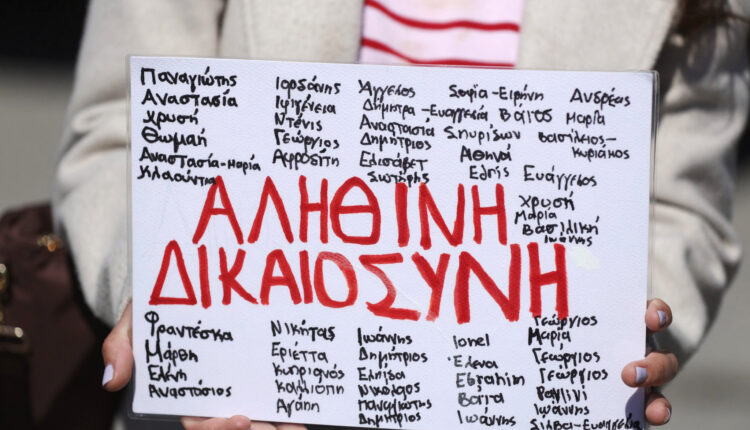 Παναγιώτης
Αναστασία
Χρυσή
Θωμαή
Αναστασία-Μαρία
Κλαούντια
Ιορδάνης
Ιφιγένεια
Ντένις
Γεώργιος
Αφροδίτη
Άγγελος
Δήμητρα-Ευαγγελία
Αναστασία
Δημήτριος
Ελισάβετ
Σωτήρης
Σοφία-Ειρήνη
Βάϊος
Σπυρίδων
Αθηνά
Ελπίς
Ανδρέας
Μαρία
Βασίλειος-
Κυριάκος
Ευάγγελος
Χρυσή
Μαρία
Βασιλική
Ιωάννης
ΑΛΗΘΙΝΗ
ΔΙΚΑΙΟΣΥΝΗ
Φραντέσκα
Μάρθη
Ελένη
Αναστάσιος
Νικήτας
Εριέττα
Κυπριανός
Καλλιόπη
Αγάπη
Ιωάννης
Δημήτριος
Ελπίδα
Νικόλαος
Παναγιώτης
Δημήτριος
Ionel
Έλενα
Ebrahim
Βάϊα
Ιωάννης
Γεώργιος
Μαρία
Γεώργιος
Γεώργιος
Ιωάννης